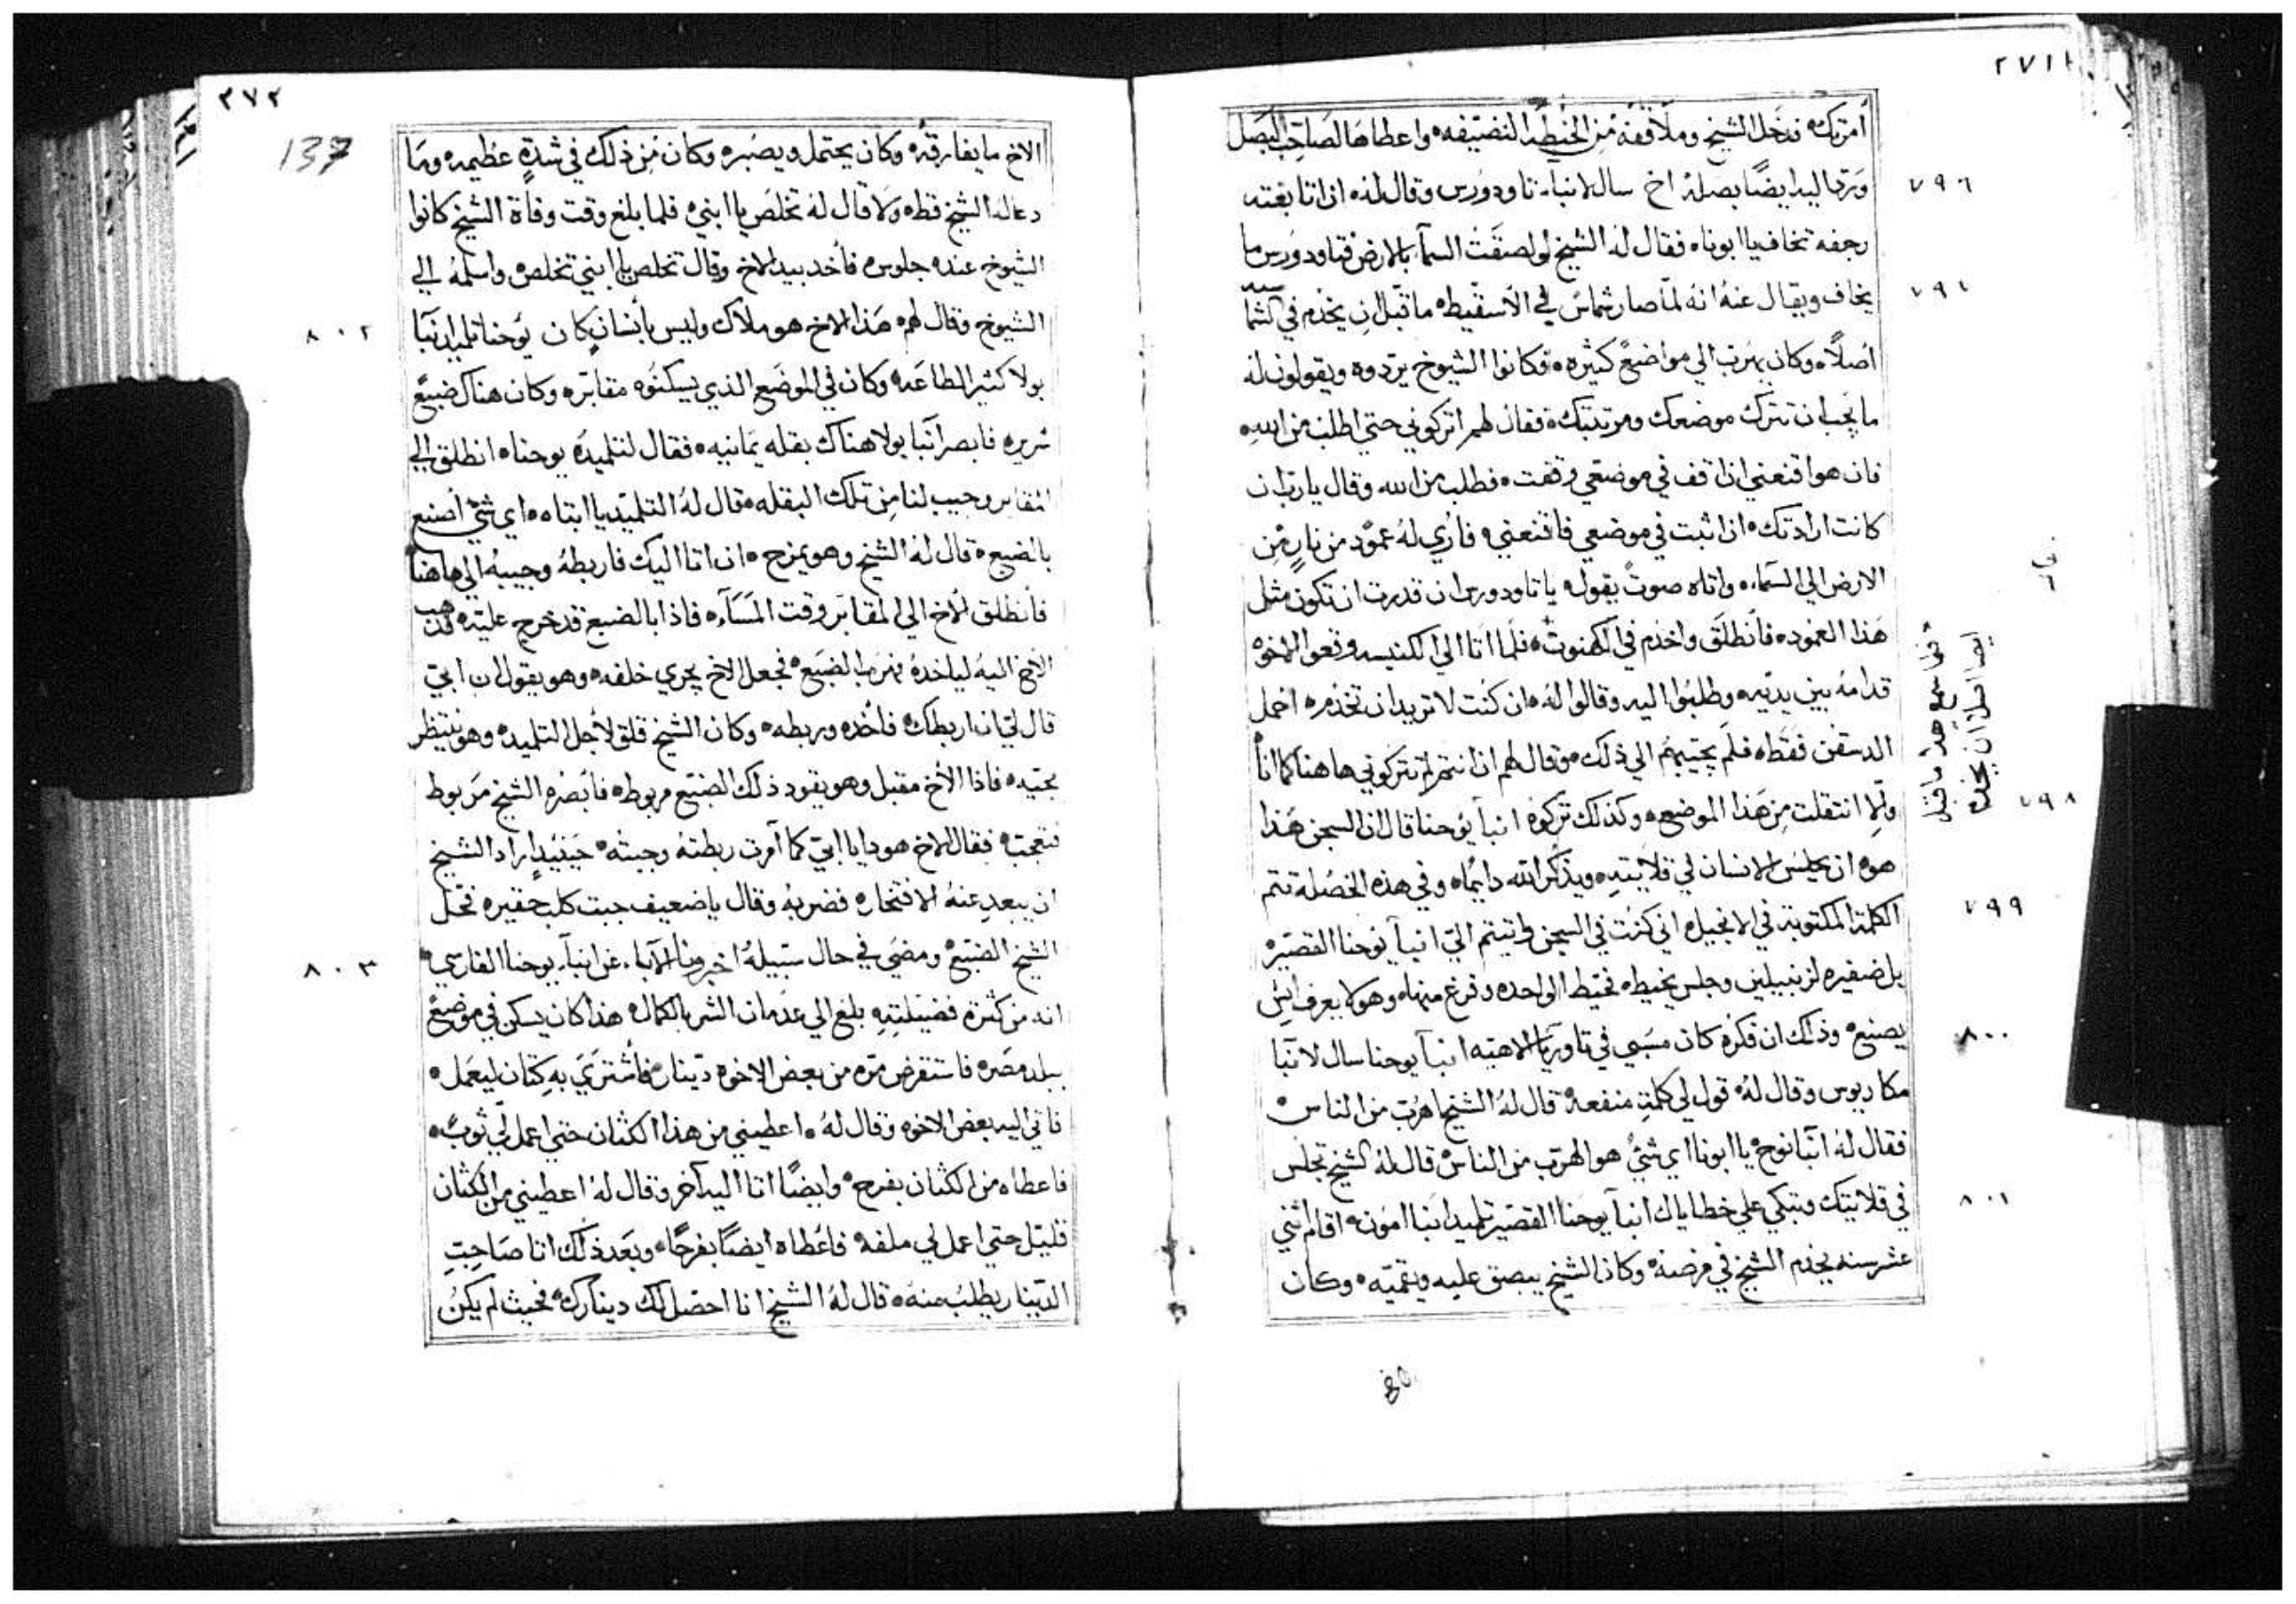 ٢٧١
أمرتك، فدخل الشيخ وملا قفه من الحنطه النضيفه، واعطاها لصاحب البصل
ورد اليه ايضًا بصله، اخ سال لانبا تاودورس وقال له، ان اتا بغته
٧٩٦
رجفه تخاف يا ابوناه فقال له الشيخ لو لصقت السمآ بالارض فتاودورس ما
يخاف ويقال عنه انه لمّا صار شماس في الاسقيطه ما قبل ان يخدم في
اصلاً، وكان يهرب الي مواضع كثيره، فكانوا الشيوخ يردوه ويقولون له
ما يجب ان تترك موضعك ومرتبتك، فقال لهم اتركوني حتي اطلب من الله،
فان هو اقنعني ان اقف في موضعي وقفت، فطلب من الله وقال يا رب ان
كانت ارادتك، ان اثبت في موضعي فاقنعني، فاري له عمود من نار من
الارض الي السماء، واتاه صوت يقول، يا تاودورس ان قدرت ان تكون مثل
هذا العمود، فانطلق واخدم في الكهنوت، فلما اتا الي الكنيسه وقعوا الاخوه
قدامه بين يديه، وطلبوا اليه وقالوا له، ان كنت لا تريد ان تخدم، احمل
الدسقن فقط، فلم يجيبهم الي ذلك، وقال لهم ان انتم لم تتركوني هاهنا كما انا
والا انتقلت من هذا الموضع، وكذلك تركوه انبا يوحنا قال ان السجن هذا
٧٩٨
هو، ان يجلس الانسان في قلايته، ويذكر الله دايمًا، وفي هذه الخصله تتم
الكلمة المكتوبة في الانجيل، اني كنت في السجن واتيتم الي، انبا يوحنا القصير
٧٩٩
بل ضفيره لزنبيلين وجلس يخيطه، فخيط الواحده وفرغ منها، وهو لا يعرف ايش
يصنع، وذلك ان فكره كان مسبي في تاوريا الالاهيه، انبا يوحنا سال لانبا
٨٠٠
مكاريوس وقال له، قول لي كلمة منفعه، قال له الشيخ اهرب من الناس،
فقال له انبا نوح، يا ابونا اي شيً هو الهرب من الناس قال له الشيخ تجلس
في قلايتك وتبكي علي خطاياك، انبا يوحنا القصير تلميد انبا امونه، اقام اثني
٨٠١
عشر سنه يخدم الشيخ في مرضه، وكان الشيخ يبصق عليه ويقميه، وكان
فلما سمع هذا ما قبل
ايضا اصلا ان يخدم
٢٧٢
137
الاخ ما يفارقه، وكان يحتمل ويصبر، وكان من ذلك في شدةٍ عظيمه، وما
دعا له الشيخ قط، ولا قال له تخلص يا ابني، فلما بلغ وقت وفاة الشيخ كانوا
الشيوخ عنده جلوس، فأخد بيد الاخ وقال تخلص يا ابني تخلص، واسلمه الي
الشيوخ وقال لهم، هذا الاخ هو ملاك وليس بأنسان، كان يوحنا تلميد انبا
٨٠٢
بولا كثير الطاعه، وكان في الموضع الذي يسكنوه، مقابر، وكان هناك ضبع
شريره، فابصر انبا بولا هناك بقله يمانيه، فقال لتلميده يوحنا، انطلق الي
المقابر وجيب لنا من تلك البقله، قال له التلميد يا ابتاه، اي شيً أصنع
بالضبع، قال له الشيخ وهو يمزح، ان اتا اليك فاربطه وجيبه الي هاهنا
فأنطلق الاخ الي المقابر وقت المسآء، فاذا بالضبع قد خرج عليه،
الأخ اليه ليأخده فهرب الضبع، فجعل الاخ يجري خلفه، وهو يقول ان ابي
قال لي ان اربطك، فأخده وربطه، وكان الشيخ قلق لأجل التلميد، وهو ينتظر
مجيه، فاذا الأخ مقبل وهو يقود ذلك الضبع مربوط، فأبصره الشيخ مربوط
فتعجب، فقال الاخ هودا يا ابي كما آمرت ربطته وجبته، حينيدٍ اراد الشيخ
ان يبعد عنه الافتخار، فضربه وقال يا ضعيف جبت كلب حقيره، فحل
الشيخ الضبع، ومضي في حال سبيله، اخبرونا الآبا، عن انبا، يوحنا الفارسي،
٨٠٣
انه من كثرة فضيلته، بلغ الي عدمان الشر بالكمال، هذا كان يسكن في موضع
ببلد مصر، فاستقرض مره من بعض الاخوه دينار، فأشتري به كتان ليعمله،
فاتي اليه بعض الاخوه وقال له، اعطيني من هذا الكتان حتي اعمل لي ثوب،
فاعطاه من الكتان بفرح، وايضًا اتا اليه آخر وقال له اعطيني من الكتان
قليل حتي اعمل لي ملفه، فاعطاه ايضًا بفرحًا، وبعد ذلك اتا صاحب
الدينار يطلب منه، قال له الشيخ انا احضر لك دينارك، فحيث لم يكن